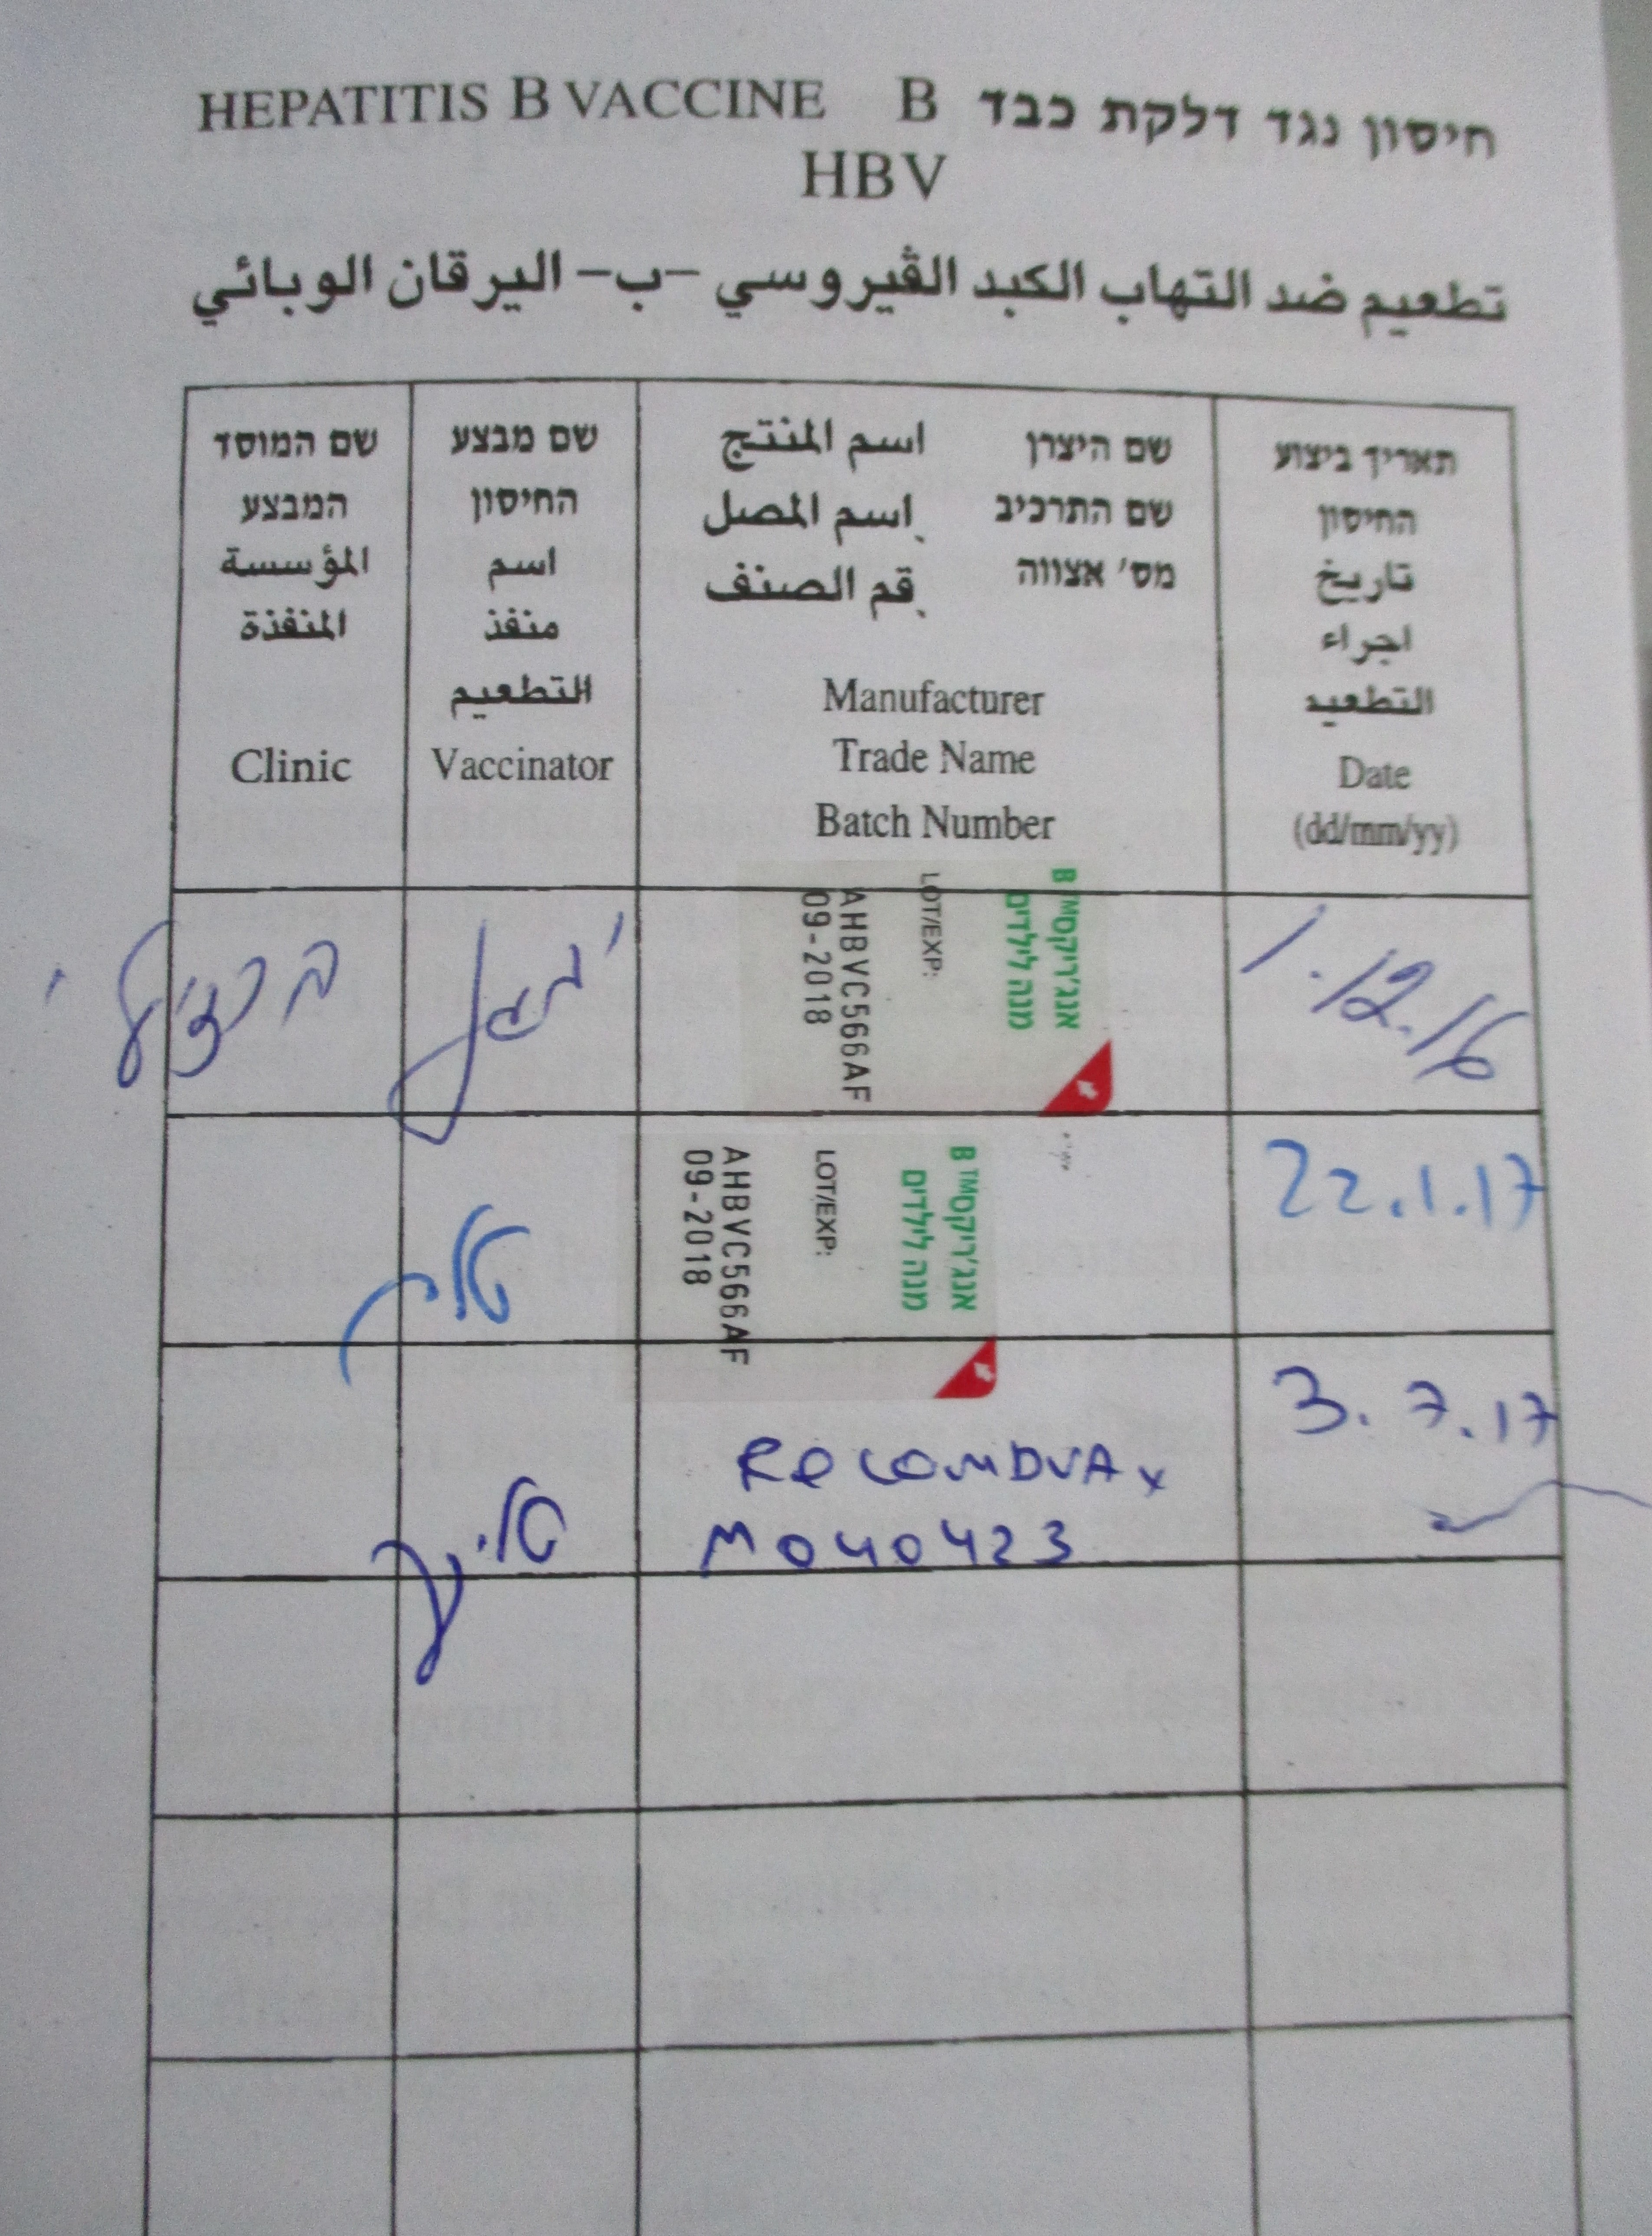 HEPATITIS B VACCINE חיסון נגד דלקת כבד B
HBV
تطعيم ضد التهاب الكبد الڤيروسي -ب- اليرقان الوبائي
תאריך ביצוע
החיסון
تاريخ
اجراء
التطعيد
Date
(dd/mm/yy)
שם היצרן اسم المنتج
שם התרכיב اسم المصل
מס' אצווה قم الصنف
Manufacturer
Trade Name
Batch Number
שם מבצע
החיסון
اسم
منفذ
التطعيم
Vaccinator
שם המוסד
המבצע
المؤسسة
المنفذة
Clinic
1.12.16
אנג'ריקס™ B
מנה לילדים
LOT/EXP:
AHBVC566AF
09-2018
22.1.17
אנג'ריקס™ B
מנה לילדים
LOT/EXP:
AHBVC566AF
09-2018
3.7.17
RecombVAx
M040423